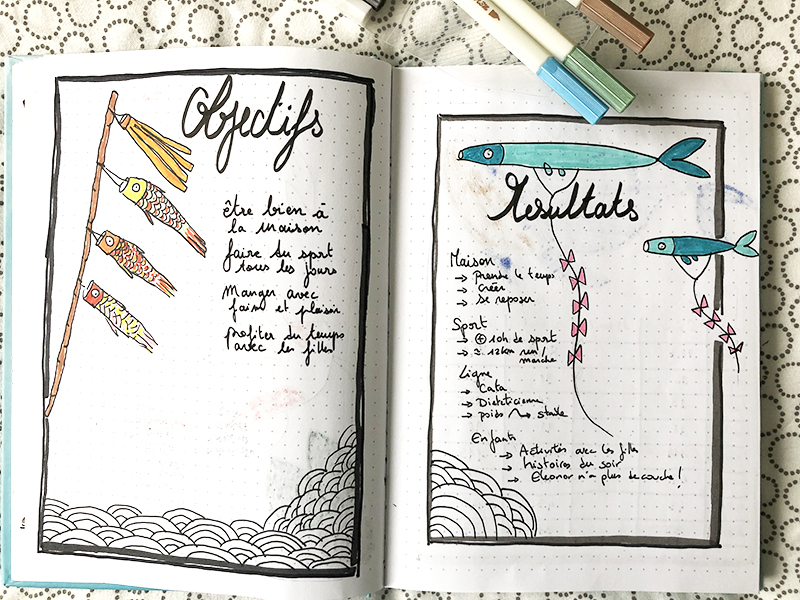 Objectifs
être bien à
la maison
faire du sport
tous les jours
manger avec
faim et plaisir
profiter du temps
avec les filles
Resultats
Maison
→ prendre le temps
→ Créer
→ Se reposer
Sport
→ ⊕ 10h de sport
→ ≈ 12km run/
marche
Ligne
→ Cata
→ Dieteticienne
→ poids ↝ stable
Enfants
→ Activités avec les filles
→ histoires du soir
→ Eleonor n'a plus de couche !